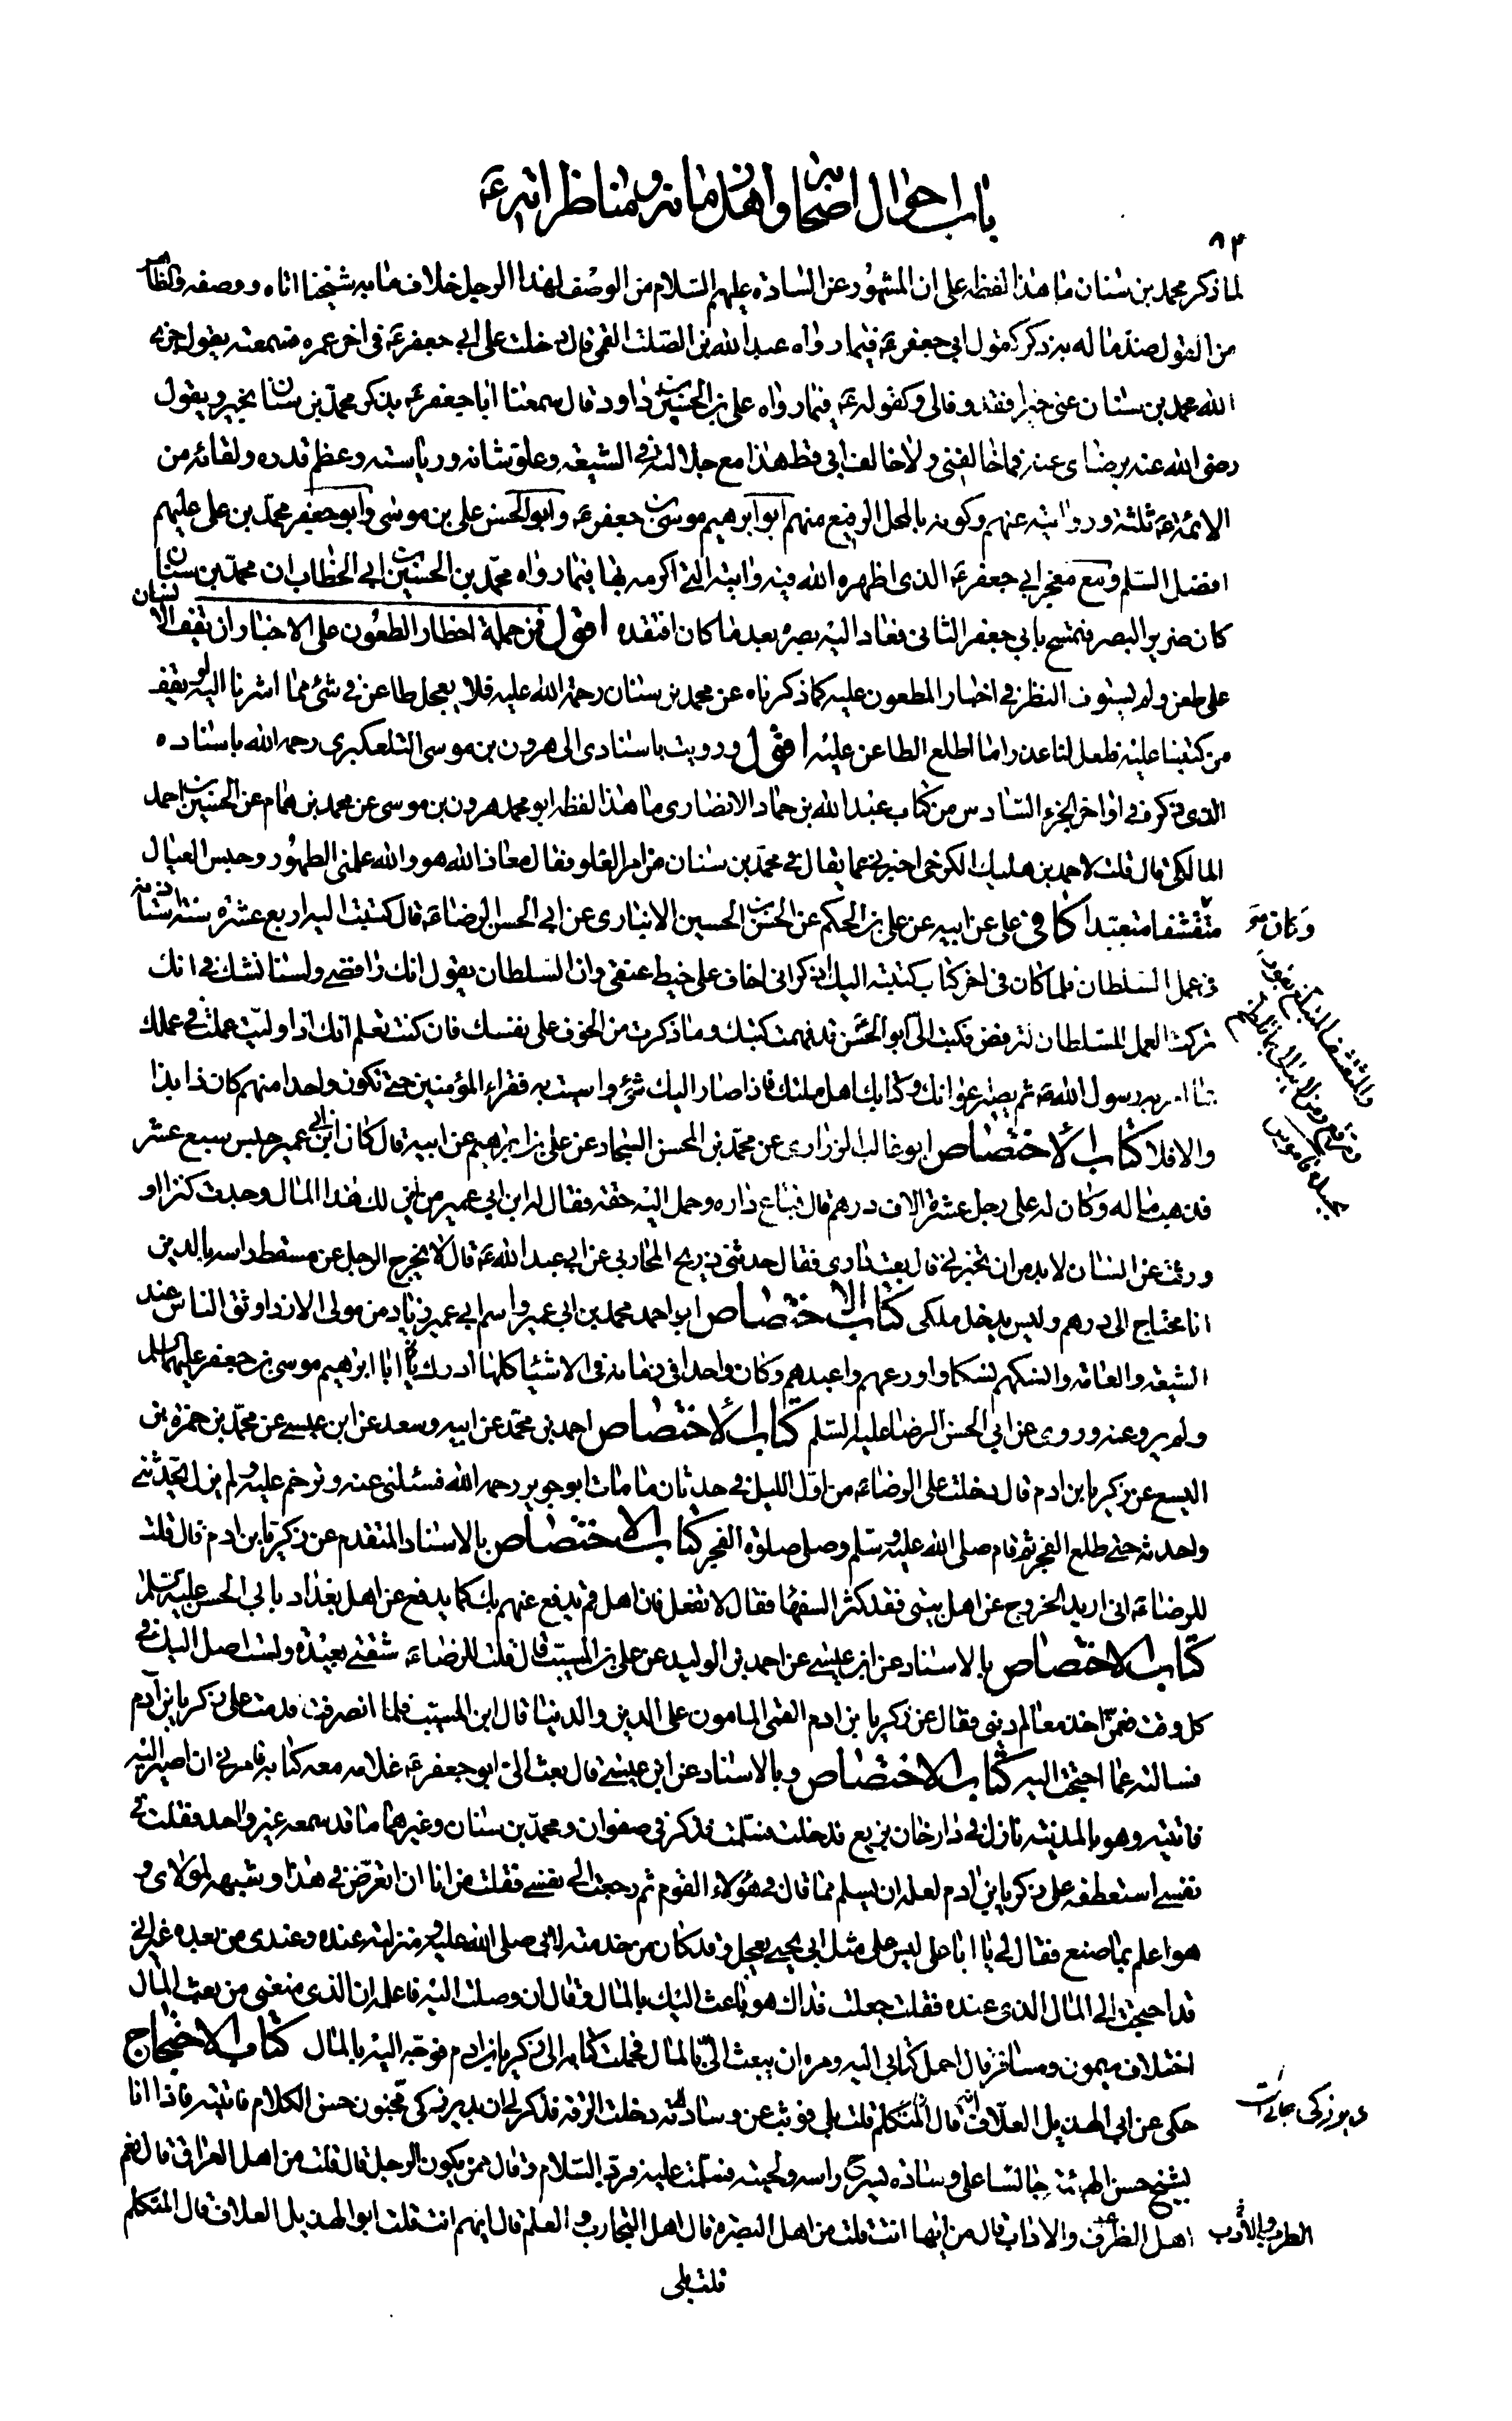 باب احوال اصحابه واهل زمانه ومناظراتهم ع
٨٣
لما ذكر محمد بن سنان ما هذا لفظه على ان المشهور عن السادة عليهم السلام من الوصف لهذا الرجل خلاف ما به شيخنا اتاه ووصفه والظاهر
من القول ضد ما له به ذكر كقول ابي جعفر ع فيما رواه عبد الله بن الصلت القمي قال دخلت على ابي جعفر ع في اخر عمره فسمعته يقول جزى
الله محمد بن سنان عني خيرا فقد وفى لي وكقوله ع فيما رواه علي بن الحسين بن داود قال سمعنا ابا جعفر ع يذكر محمد بن سنان بخير ويقول
رضي الله عنه برضاي عنه فما خالفني ولا خالف ابي قط هذا مع جلالته في الشيعة وعلو شانه ورياسته وعظم قدره ولقائه من
الائمة ع ثلثة وروايته عنهم وكونه بالمحل الرفيع منهم ابو ابرهيم موسى بن جعفر ع وابو الحسن علي بن موسى وابو جعفر محمد بن علي عليهم
افضل السلم ومع معجز ابي جعفر ع الذي اظهره الله فيه وايته التي اكرمه بها فيما رواه محمد بن الحسين بن ابي الخطاب ان محمد بن سنان
كان ضرير البصر فتمسح بابي جعفر الثاني فعاد اليه بصره بعد ما كان افتقده اقول فمن جملة اخطار الطعون على الاخيار ان يقف الانسان
على طعن ولم يستوف النظر في اخبار المطعون عليه كما ذكرناه عن محمد بن سنان رحمة الله عليه فلا يعجل طاعن في شئ مما اشرنا اليه او يقف
من كتبنا عليه فلعل لنا عذرا ما اطلع الطاعن عليه اقول ورويت باسنادي الى هرون بن موسى التلعكبري رحمه الله باسناده
الذي ذكره في اواخر الجزء السادس من كتاب عبد الله بن حماد الانصاري ما هذا لفظه ابو محمد هرون بن موسى عن محمد بن همام عن الحسين بن احمد
المالكي قال قلت لاحمد بن هليك الكرخي اخبرني عما يقال في محمد بن سنان من امر الغلو فقال معاذ الله هو والله علمني الطهور وحبس العيال
وكان متقشفا متعبدا كافي علي عن ابيه عن علي بن الحكم عن الحسن بن الحسين الانباري عن ابي الحسن الرضا ع قال كتبت اليه اربع عشرة سنة استاذنه
في عمل السلطان فلما كان في اخر كتاب كتبته اليه اذكر اني اخاف على خيط عنقي وان السلطان يقول انك رافضي ولسنا نشك في انك
تركت العمل للسلطان لترفض فكتب الي ابو الحسن قد فهمت كتبك وما ذكرت من الخوف على نفسك فان كنت تعلم انك اذا وليت عملت في عملك
بما امر به رسول الله ص ثم يصير اعوانك وكتابك اهل ملتك فاذا صار اليك شئ واسيت به فقراء المؤمنين حتى تكون واحدا منهم كان ذا بذا
والا فلا كتاب الاختصاص ابو غالب الزراري عن محمد بن المحسن السجاد عن علي بن ابرهيم عن ابيه قال كان ابن ابي عمير حبس سبع عشر
فذهب ماله وكان له على رجل عشرة الاف درهم قال فباع داره وحمل اليه حقه فقال له ابن ابي عمير من اين لك هذا المال وجدت كنزا او
ورثت عن انسان لا بد من ان تخبرني قال بعت داري فقال حدثني ذريح المحاربي عن ابي عبد الله ع قال لا يخرج الرجل عن مسقط راسه بالدين
انا محتاج الى درهم وليس يدخل ملكي كتاب الاختصاص ابو احمد محمد بن ابي عمير واسم ابي عمير زياد من موالي الازد اوثق الناس عند
الشيعة والعامة وانسكهم نسكا واورعهم واعبدهم وكان واحدا في زمانه في الاشياء كلها ادرك ابا ابراهيم موسى بن جعفر عليهما السلم
ولم يرو عنه وروى عن ابي الحسن الرضا عليه السلم كتاب الاختصاص احمد بن محمد عن ابيه وسعد عن ابن عيسى عن محمد بن حمزة بن
اليسع عن زكريا بن ادم قال دخلت على الرضا ع من اول الليل في حدثان ما مات ابو جرير رحمه الله فسئلني عنه وترحم عليه ولم يزل يحدثني
واحدثه حتى طلع الفجر ثم قام صلى الله عليه وسلم وصلى صلوة الفجر كتاب الاختصاص بالاسناد المتقدم عن زكريا بن ادم قال قلت
للرضا ع اني اريد الخروج عن اهل بيتي فقد كثر السفهاء فقال لا تفعل فان اهل قم يدفع عنهم بك كما يدفع عن اهل بغداد بابي الحسن عليه السلم
كتاب الاختصاص بالاسناد عن ابن عيسى عن احمد بن الوليد عن علي بن المسيب قال قلت للرضا ع شقتي بعيدة ولست اصل اليك في
كل وقت فممن اخذ معالم ديني فقال عن زكريا بن ادم القمي المامون على الدين والدنيا قال ابن المسيب فلما انصرفت قدمت على زكريا بن ادم
فسالته عما احتجت اليه كتاب الاختصاص وبالاسناد عن ابن عيسى قال بعث الي ابو جعفر ع غلامه معه كتابه فامرني ان اصير اليه
فاتيته وهو بالمدينة نازل في دار خان بزيع فدخلت فسلمت فذكر في صفوان ومحمد بن سنان وغيرهما ما قد سمعه غير واحد فقلت في
نفسي استعطفه على زكريا بن ادم لعله ان يسلم مما قال في هؤلاء القوم ثم رجعت الى نفسي فقلت من انا ان اتعرض في هذا وشبهه لمولاي و
هو اعلم بما صنع فقال لي يا ابا علي ليس على مثل ابي يحيى يعجل وقد كان من خدمته لابي صلى الله عليه ومنزلته عنده وعندي من بعده غير اني
قد احتجت الى المال الذي عنده فقلت جعلت فداك هو باعث اليك بالمال وقال ان وصلت اليه فاعلمه ان الذي منعني من بعث المال
اختلاف ميمون ومسافر قال احمل كتابي اليه ومره ان يبعث الي بالمال فحملت كتابه الى زكريا بن ادم فوجه اليه بالمال كتاب الاحتجاج
حكي عن ابي الهذيل العلاف قال دخلت الرقة فذكر لي ان بدير زكى مجنون حسن الكلام فاتيته فاذا انا
بشيخ حسن الهيئة جالسا على وسادة يسرح راسه ولحيته فسلمت عليه فرد السلام وقال ممن يكون الرجل قال قلت من اهل العراق قال نعم
اهل الظرف والاداب قال من ايها انت قلت من اهل البصرة قال اهل التجارب والعلم قال فمن ايهم انت قلت ابو الهذيل العلاف قال المتكلم
قلت بلى